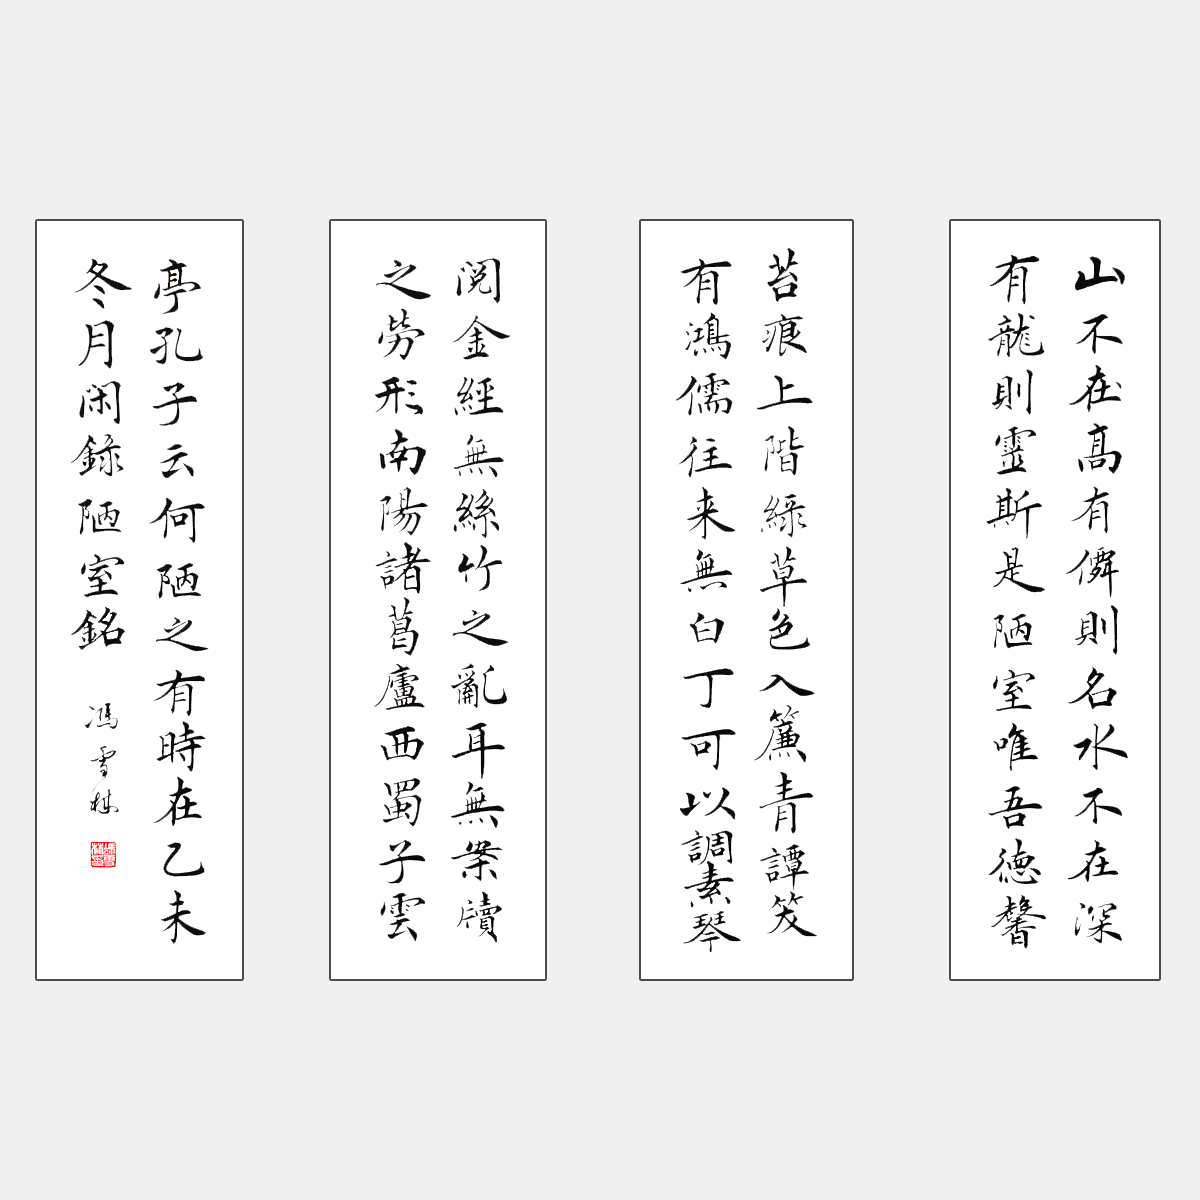 山不在髙有僊則名水不在深
有龍則靈斯是陋室唯吾徳馨
苔痕上階緑草色入簾青譚笑
有鴻儒往来無白丁可以調素琴
閱金經無絲竹之亂耳無案牘
之勞形南陽諸葛廬西蜀子雲
亭孔子云何陋之有時在乙未
冬月閑錄陋室銘
馮雪林